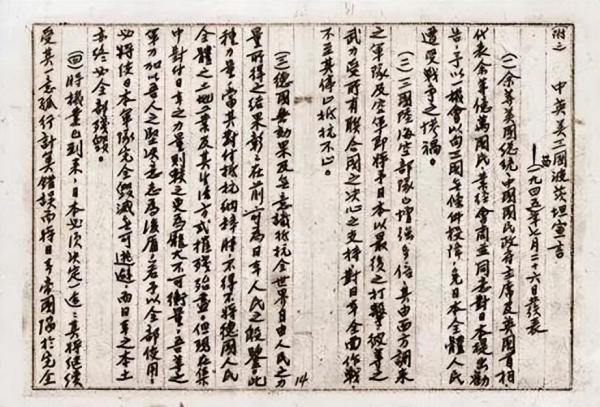 附之 中英美三國波茨坦宣言
——一九四五年七月二十六日發表
(一)余等美國總統、中國國民政府主席及英國首相,
代表余等億萬國民業經會商並同意對日本提出勸
告,予以一機會以向三國無條件投降,免日本全體人民
遭受戰争之慘禍。
(二)三國陸海空部隊已增強多倍,其由西方調來
之軍隊及空軍即將予日本以最後之打擊,彼等之
武力受所有聯合國之决心之支持,對日本全面作戰,
不至其停止抵抗不止。
(三)德國無効果及無意識抵抗全世界自由人民之力
量所得之結果,彰彰在前,可為日本人民之殷鑒。此
種力量當其對付抵抗納粹時不得不將德國人民
全體之土地工業及其生活方式摧殘殆盡。但現在集
中對付日本之力量則較之更為龐大不可衡量。吾等之
軍力加以吾人之堅決意志為後盾,若予以全部使用,
必將使日本軍隊完全毀滅無可逃避,而日本之本土
亦終必全部殘毀。
(四)時機業已到來,日本必須決定一途:其將繼續
受其一意孤行計算錯誤而將日本帝國陷於完全
14